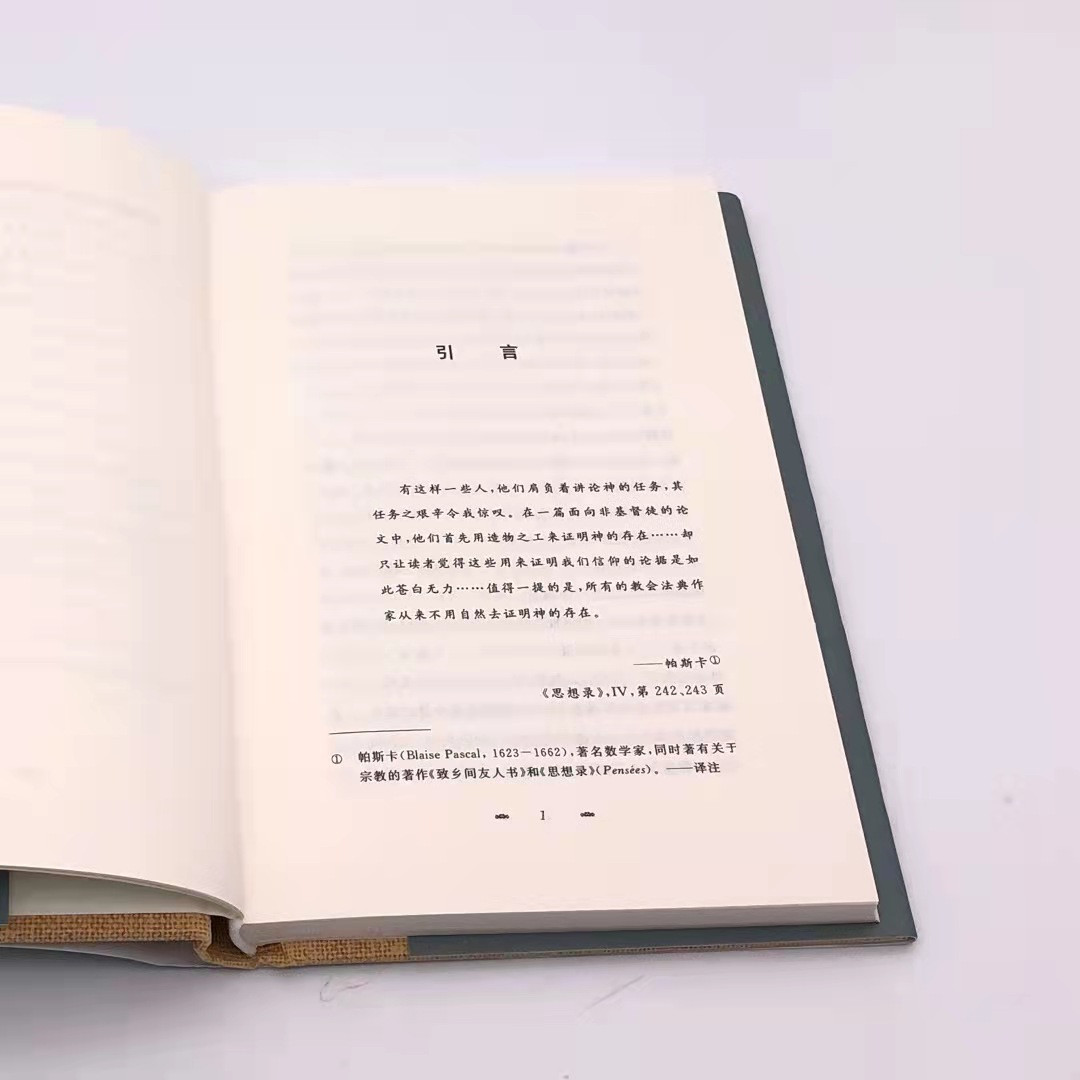 引 言
有这样一些人,他们肩负着讲论神的任务,其
任务之艰辛令我惊叹。在一篇面向非基督徒的论
文中,他们首先用造物之工来证明神的存在……却
只让读者觉得这些用来证明我们信仰的论据是如
此苍白无力……值得一提的是,所有的教会法典作
家从来不用自然去证明神的存在。
——帕斯卡①
《思想录》,IV,第 242、243 页
① 帕斯卡(Blaise Pascal, 1623-1662),著名数学家,同时著有关于
宗教的著作《致乡间友人书》和《思想录》(Pensées)。——译注
1